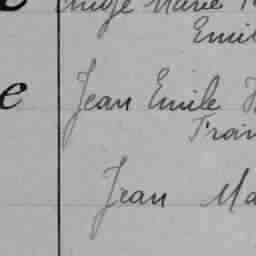 Marie
Emil
e Jean Emile
Fran
Jean Ma